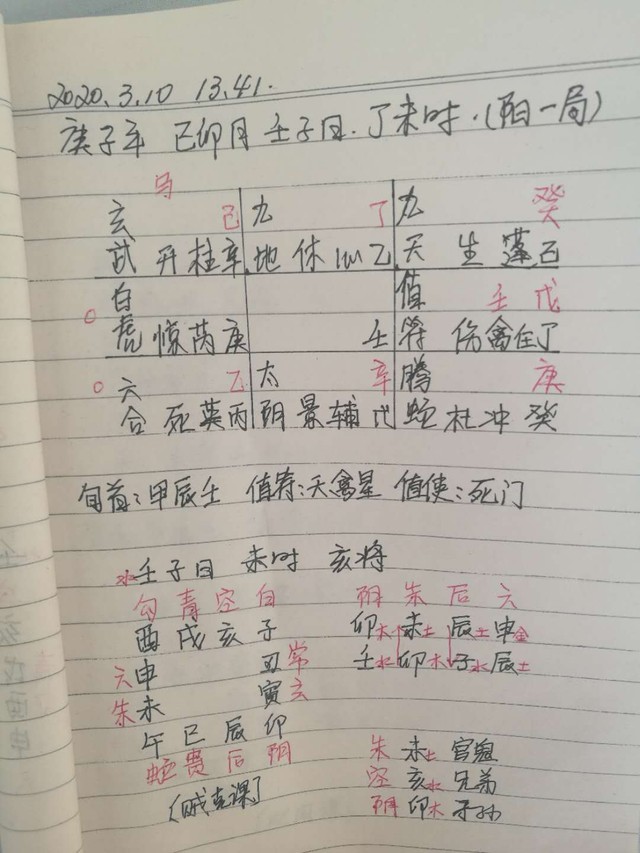 2020.3.10 13.41.
庚子年 己卯月 壬子日.丁未时.(阳一局)
马
玄 己 九 丁 九 癸
武 开 柱 辛 地 休 心 乙 天 生 蓬 己
白 值 壬 戊
○ 虎 惊 芮 庚 壬 符 伤 禽 任 丁
○ 六 乙 太 辛 腾 庚
合 死 英 丙 阴 景 辅 戊 蛇 杜 冲 癸
旬首:甲辰壬 值符:天禽星 值使:死门
水壬子日 未时 亥将
勾 青 空 白 阴 朱 后 六
酉 戌 亥 子 卯木 未土 辰土 申金
六申 丑常 壬水 卯木 子水 辰土
朱未 寅玄
午 巳 辰 卯
蛇 贵 后 阴 朱 未土 官鬼
空 亥水 兄弟
(贼克课) 阴 卯木 子孙